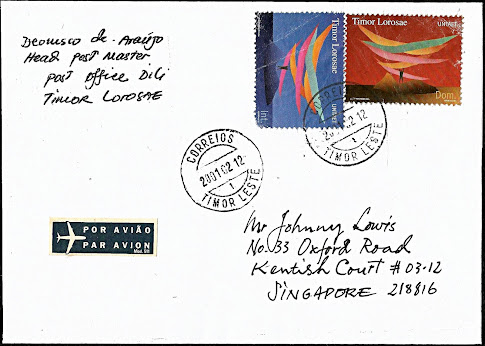 Deonisco de Araújo
Head Post Master
Post Office Dili
TIMOR LOROSAE
Timor Lorosae
UNTAET
Int.
Timor Lorosae
UNTAET
Dom.
CORREIOS
2001.02.12
1
TIMOR LESTE
2001.02.12
1
TIMOR LESTE
POR AVIÃO
PAR AVION
Mr Johnny Lowis
No. 33 Oxford Road
Kentish Court # 03-12
SINGAPORE 218816